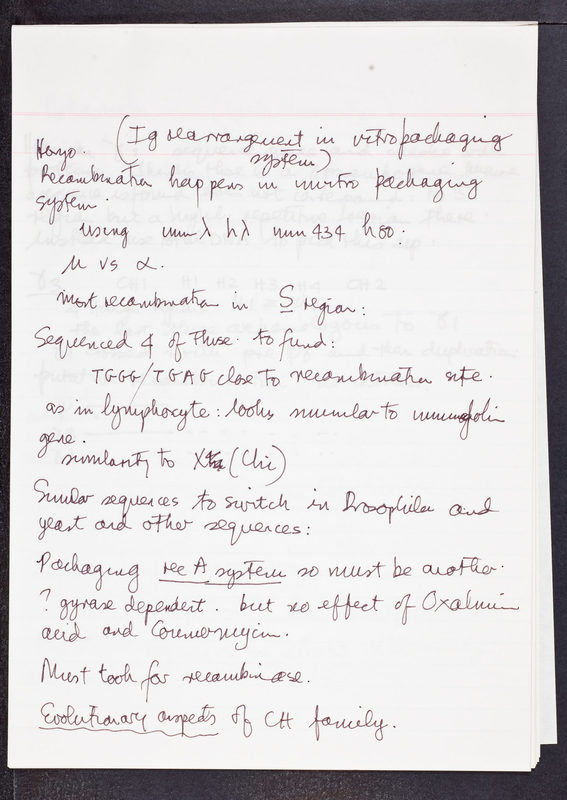 Honjo. (Ig rearrangement in vitro packaging
system)
Recombination happens in invitro packaging
system.
using imm λ hλ imm 434 h80.
μ vs α.
most recombination in S region:
Sequenced 4 of these. to fund:
TGGG/TGAG close to recombination site.
as in lymphocyte: looks similar to
gene.
similarity to (Chi)
Similar sequences to switch in Drosophila and
yeast and other sequences:
Packaging rec A system so must be another.
? gyrase dependent. but no effect of
acid and Coumermycin.
Must look for recombinase.
Evolutionary aspects of CH family.